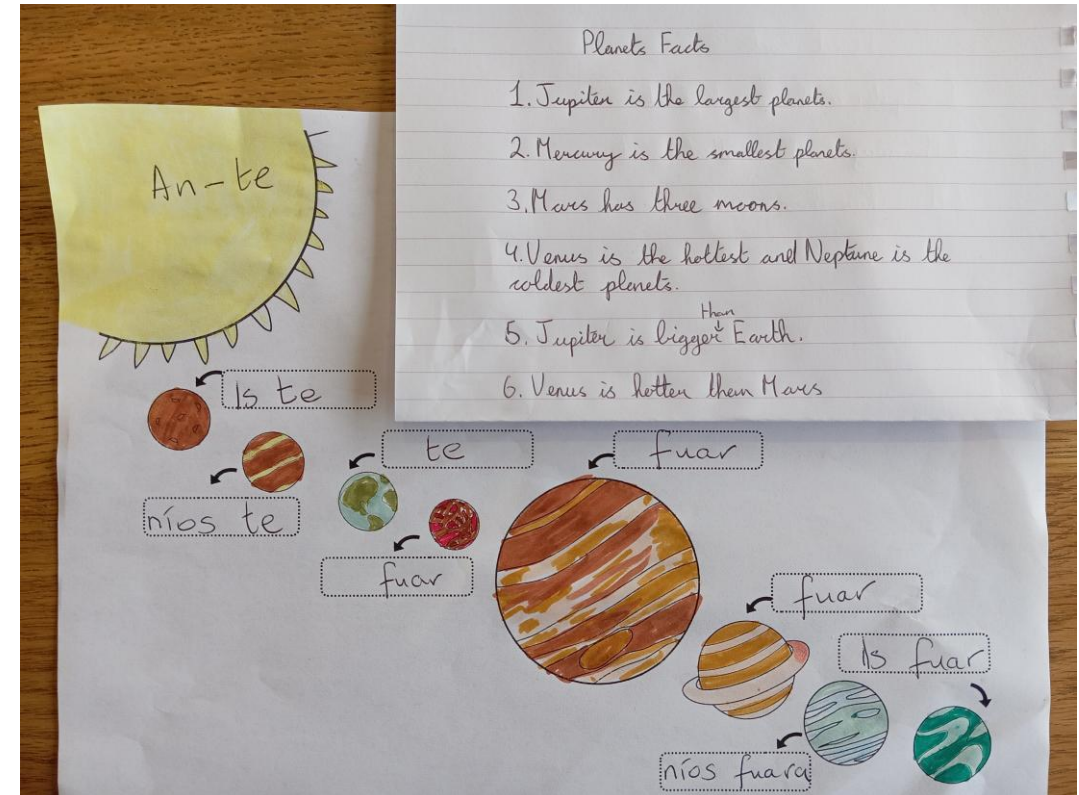 Planets Facts
1. Jupiter is the largest planets.
2. Mercury is the smallest planets.
3. Mars has three moons.
4. Venus is the hottest and Neptune is the
coldest planets.
than
5. Jupiter is bigger Earth.
6. Venus is hotter then Mars
An-te
Is te
níos te
te
fuar
fuar
fuar
níos fuara
Is fuar